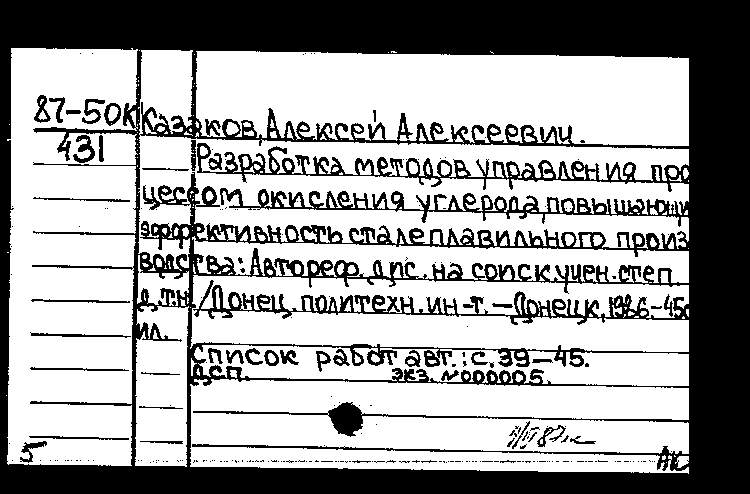 87-50К Казаков, Алексей Алексеевич.
431
Разработка методов управления про
цессом окисления углерода, повышающи
эффективность сталеплавильного произ
водства: Автореф. дис. на соиск. учен. степ.
д.т.н. /Донец. политехн. ин-т. — Донецк, 1986.-45с
ил.
Список работ авт.: с. 39-45.
ДСП. экз. №000005.
5 АК